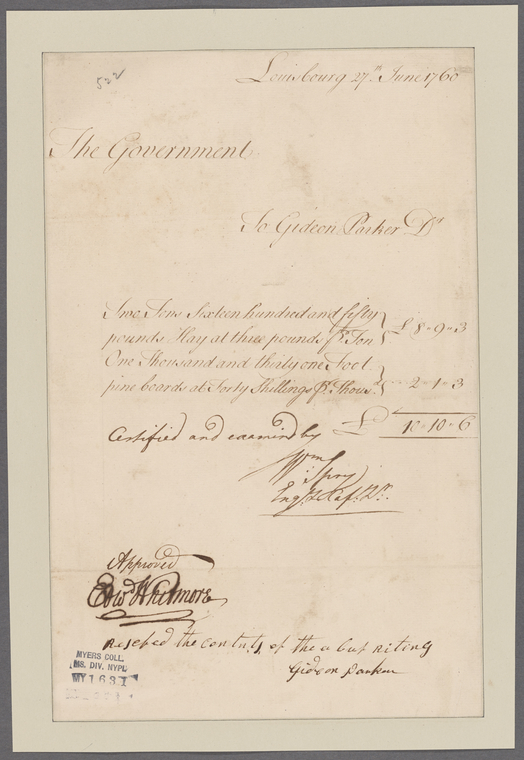 522
Louisbourg 27th. June 1760
The Government
To Gideon Parker Dr
Two Tons Sixteen hundred and fifty
pounds Hay at three pounds Pr. Ton } £ 8 " 9 " 3
One Thousand and thirty one Foot
pine boards at Forty Shillings Pr. Thous.d } 2 - 1 - 3
Certified and examind by £ 10 " 10 " 6
Wm: Spry
Engr.
Approved
Edwd Whitmore
Resepeed the contnts of the a buf riting
Gideon Parker
MYERS COLL.
MS. DIV. NYPL
MY 1631